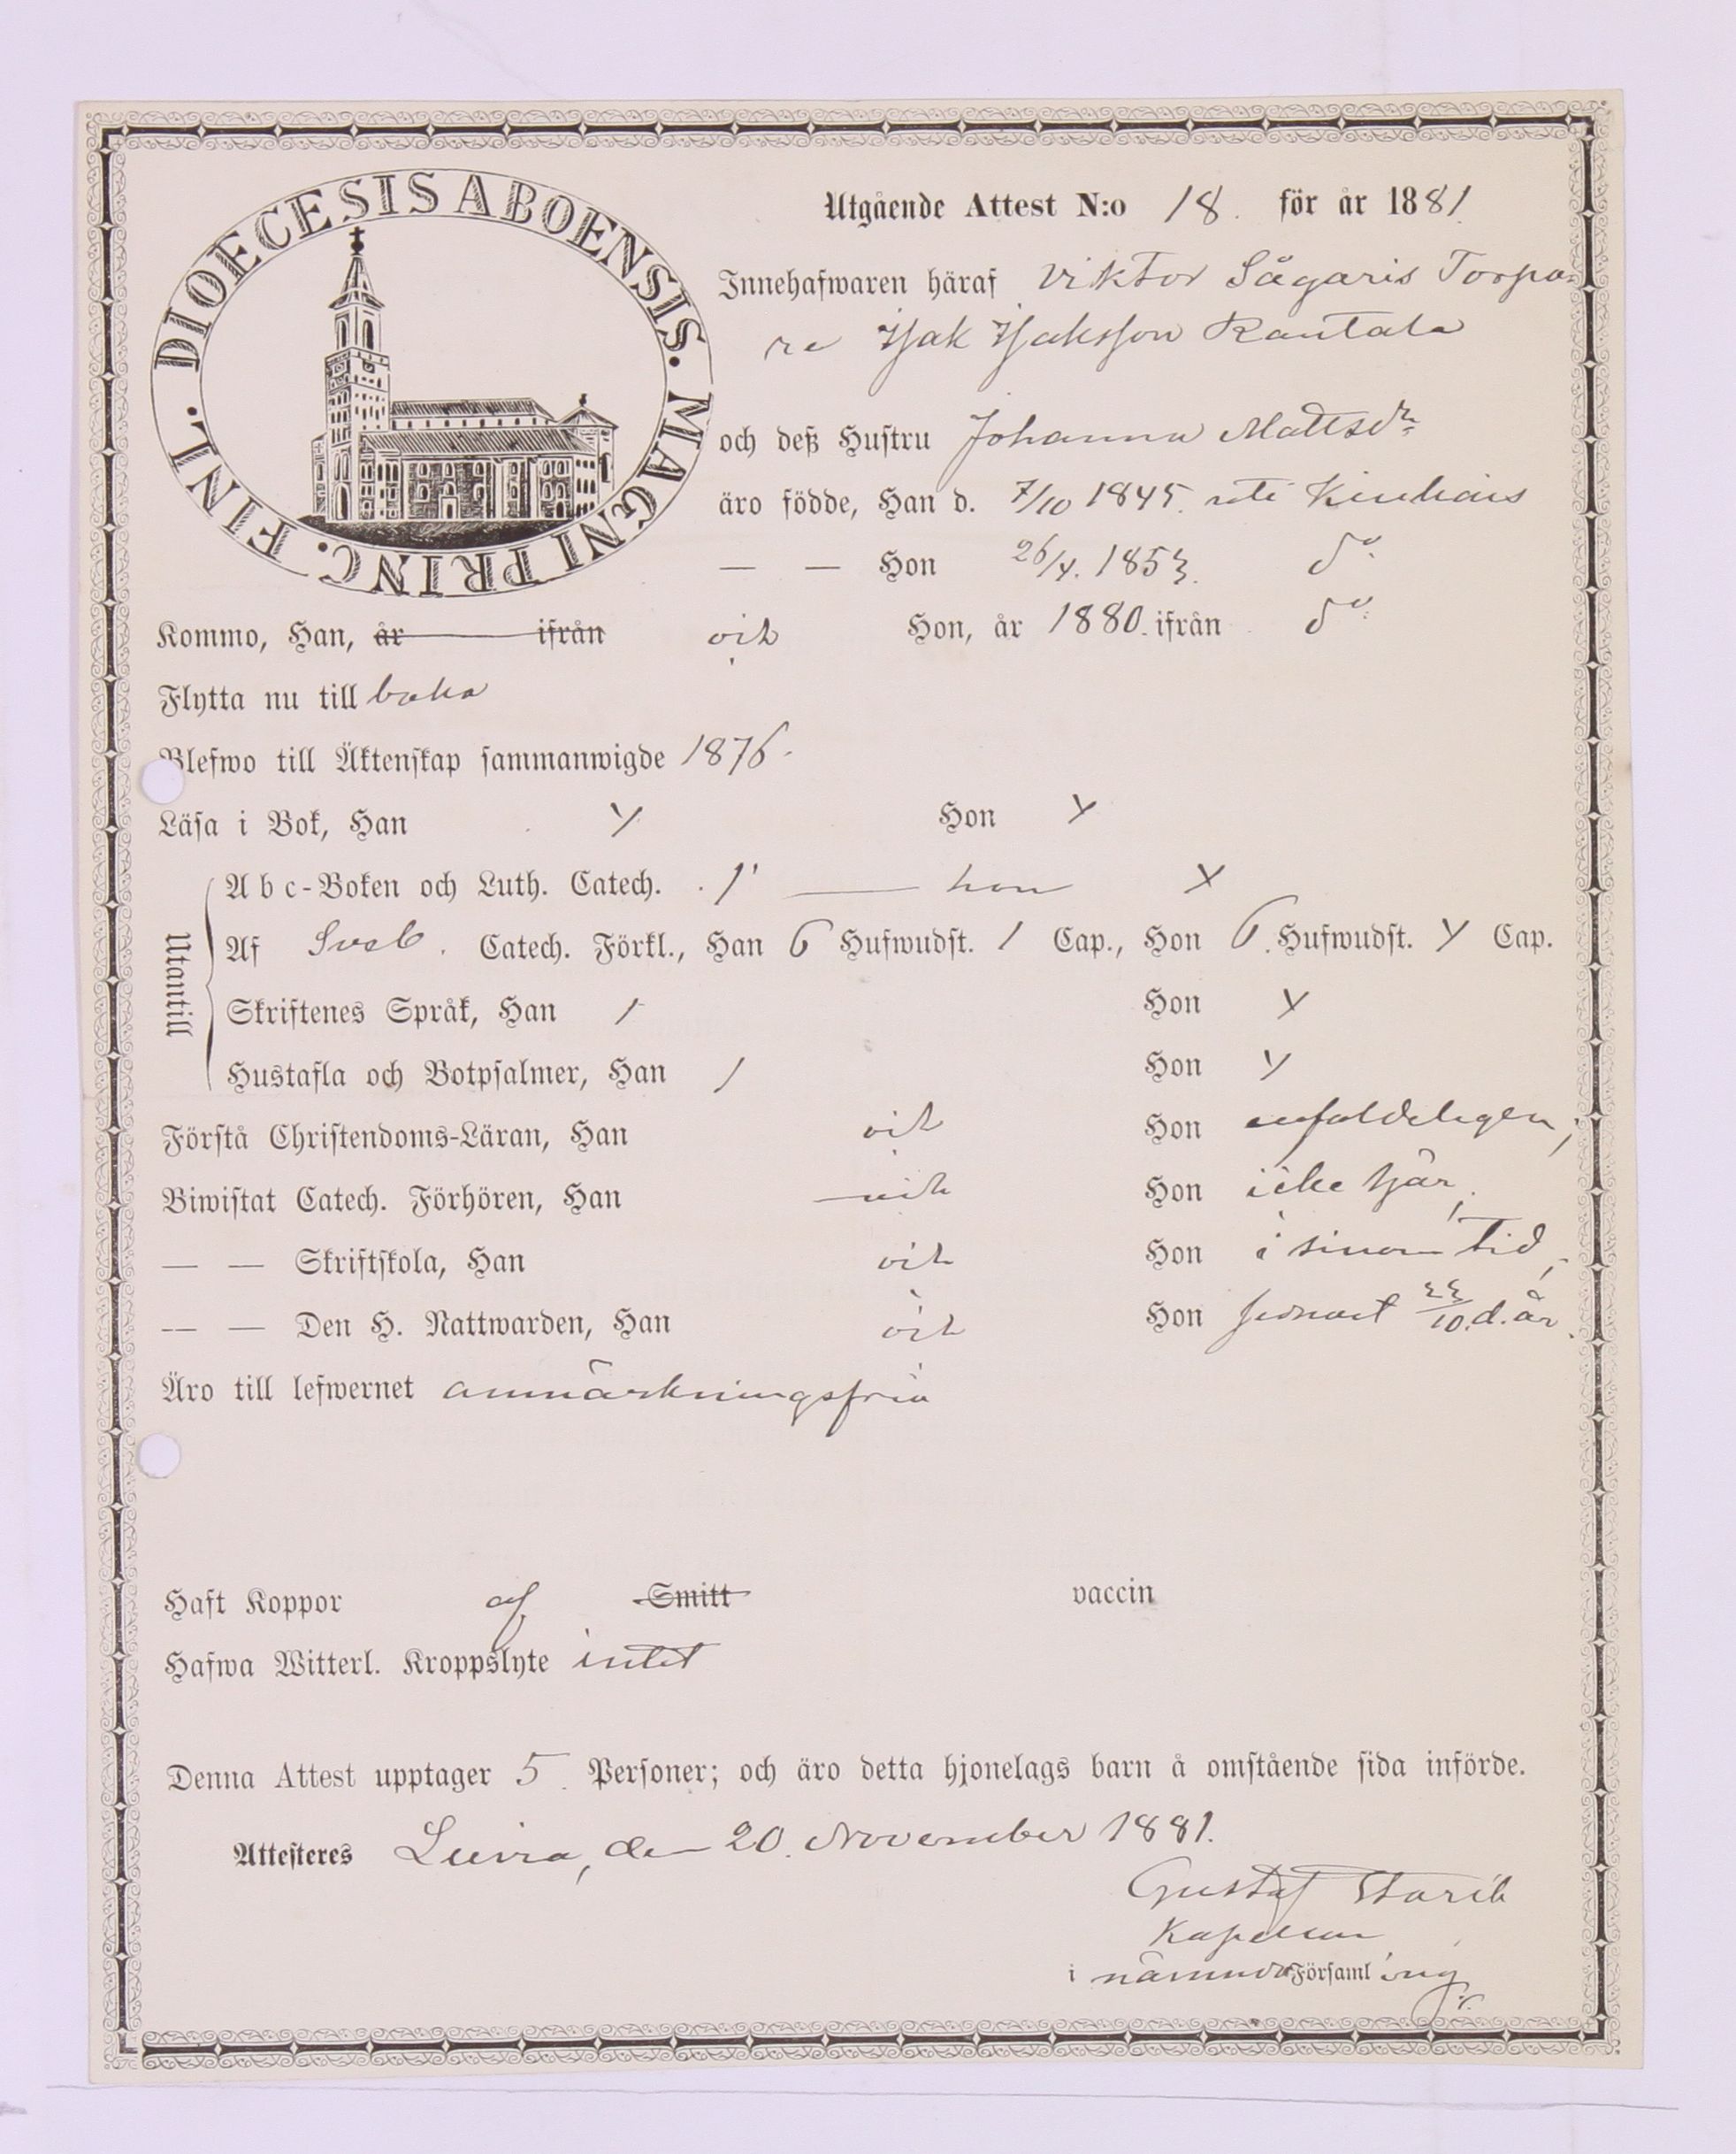 DIOECESIS ABOENSIS. MAGNI PRINC. FINL.
Utgående Attest N:o 18. för år 1881.
Innehafwaren häraf Viktor Sågaris Torpa-
re Isak Isaksson Rantala
och deß Hustru Johanna Mattsdr
äro födde, Han d. 7/10 1845. uti Kiukais
— — Hon 26/4. 1853. do
Kommo, Han, år ifrån vid Hon, år 1880. ifrån do
Flytta nu till baka
Blefwo till Äktenskap sammanwigde 1876.
Läsa i Bok, Han Y Hon Y
Utantill
Abc-Boken och Luth. Catech. 1 — hon X
Af Sveb. Catech. Förkl., Han 6 Hufwudst. 1 Cap., Hon 6. Hufwudst. Y Cap.
Skriftenes Språk, Han / Hon Y
Hustafla och Botpsalmer, Han / Hon Y
Förstå Christendoms-Läran, Han Hon enfaldeligen,
Biwistat Catech. Förhören, Han Hon icke här,
— — Skriftskola, Han Hon i sinom tid,
— — Den H. Nattwarden, Han Hon senast 23/10. d. år.
Äro till lefwernet anmärkningsfria
Haft Koppor af Smitt vaccin
Hafwa Witterl. Kroppslyte intet
Denna Attest upptager 5 Personer; och äro detta hjonelags barn å omstående sida införde.
Attesteres Luvia, den 20. November 1881.
Gustaf
Kapellan
i nämnda Församling